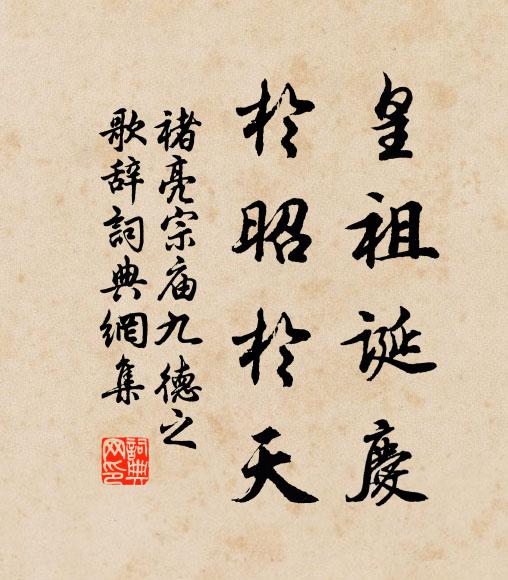 皇祖誕慶
於昭於天
褚亮宗庙九德之
歌辞詞典網集
詞典
网印